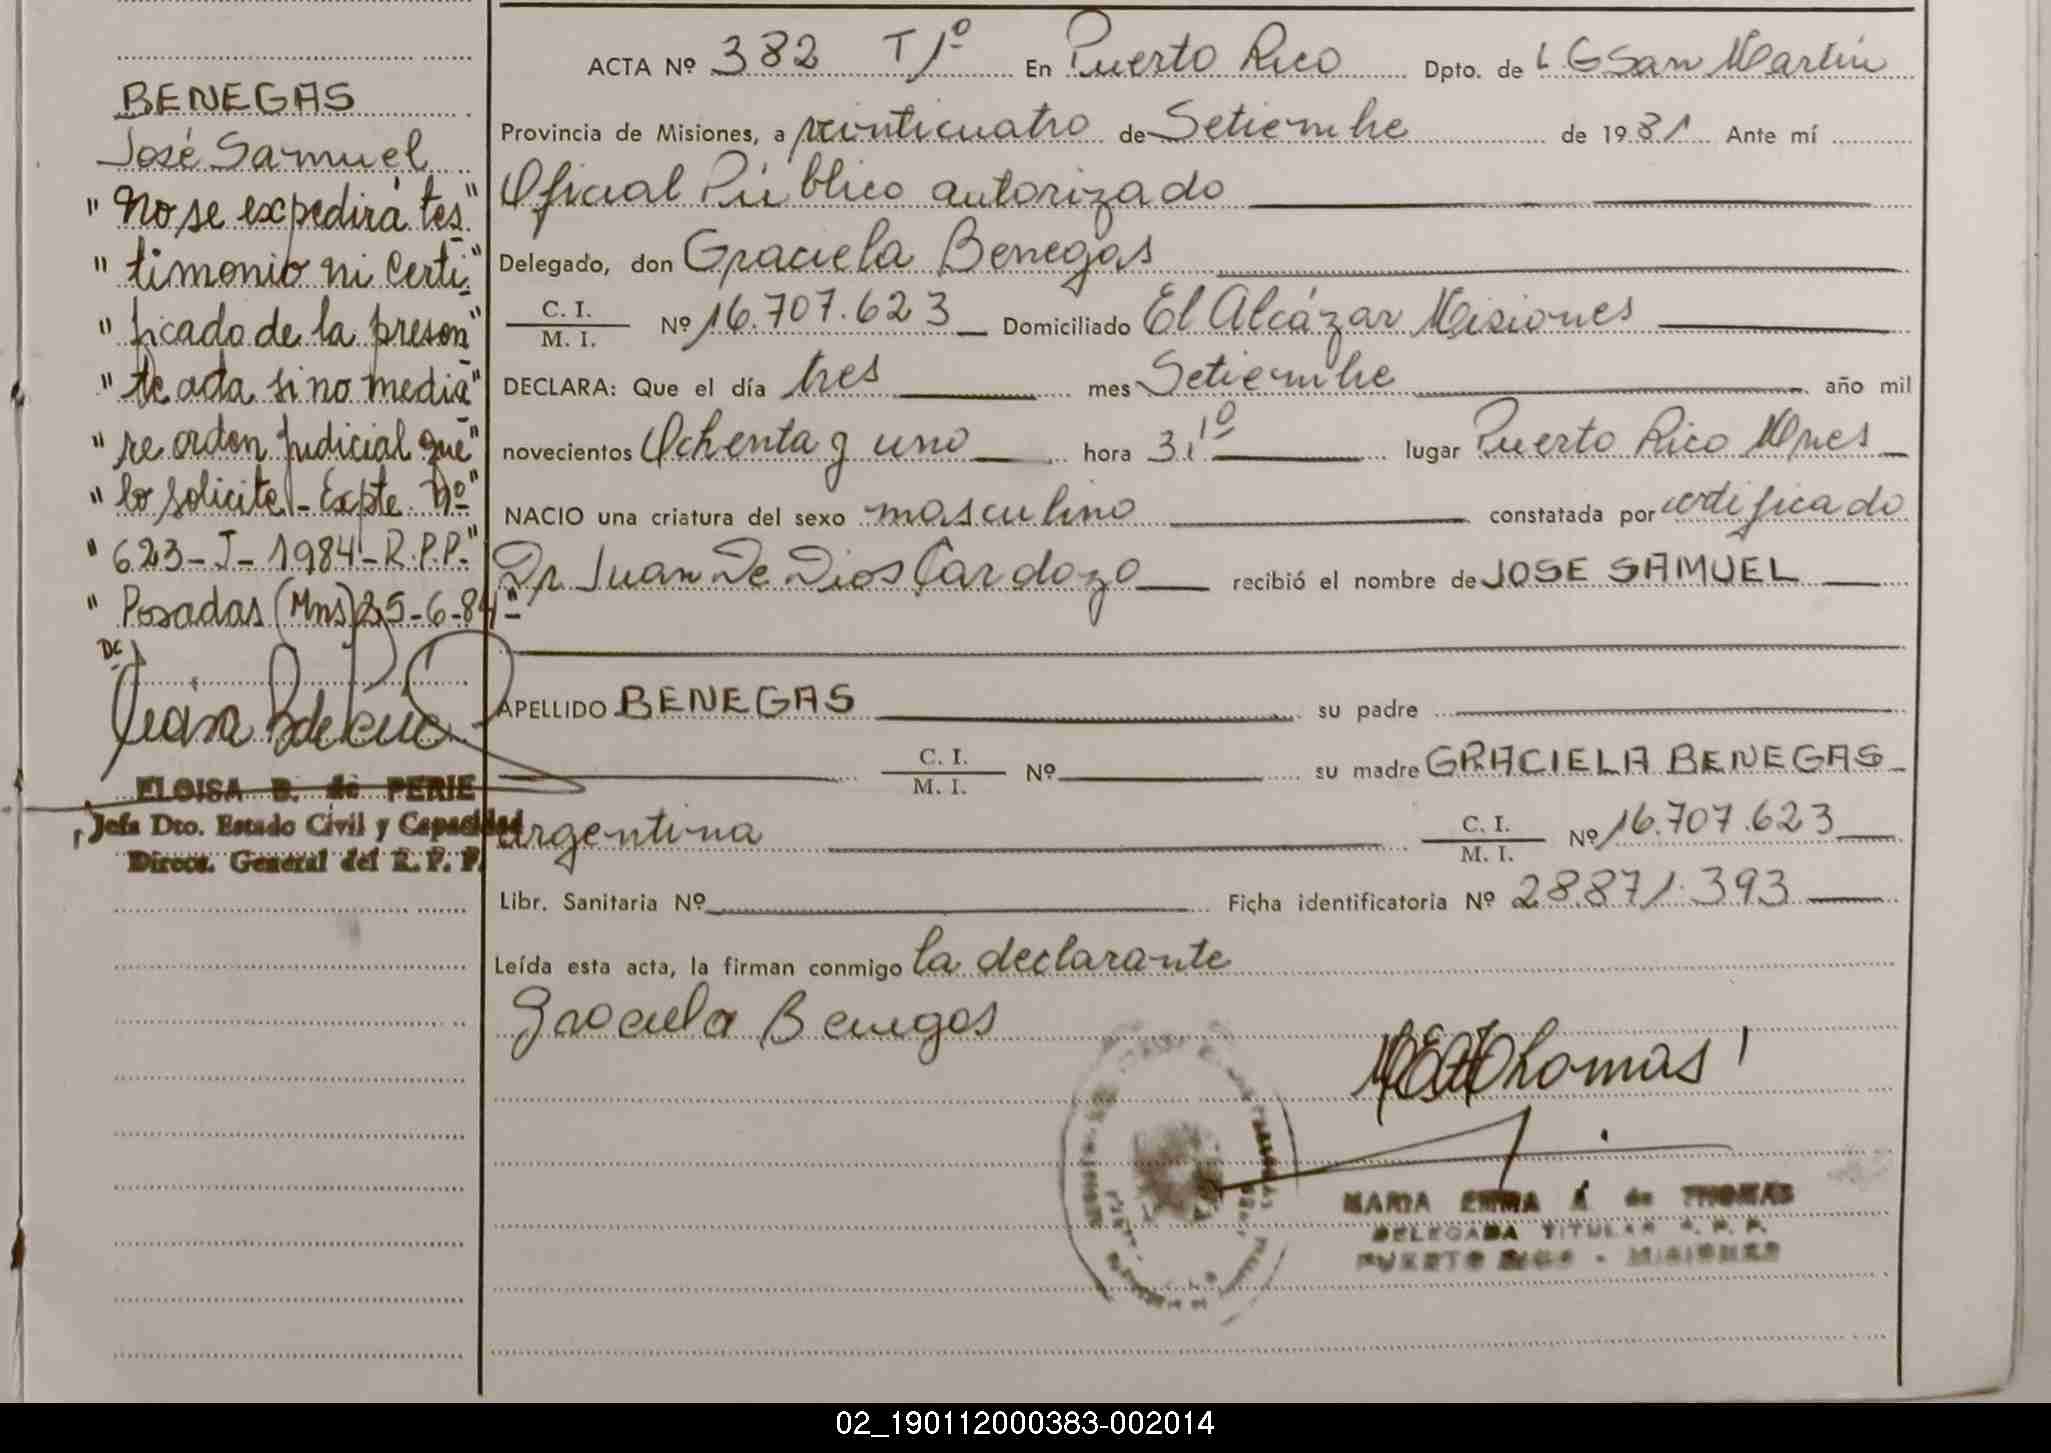 BENEGAS
José Samuel
"No se expedirá tes"
"timonio ni Certi"
"ficado de la presen"
"te acta, si no media"
"re orden judicial que"
"lo solicite - Expte. Nº"
"623-J-1984-R.P.P."
"Posadas (Mns) 25-6-84"
ELOISA B. de PERIE
Jefa Dto. Estado Civil y Capacidad
Direcc. General del R. P. P.
ACTA Nº 382 T/1º En Puerto Rico Dpto. de L G San Martín
Provincia de Misiones, a veinticuatro de Setiembre de 1981 Ante mí
Oficial Público autorizado
Delegado, don Graciela Benegas
C. I.
M. I. Nº 16.707.623 Domiciliado El Alcázar Misiones
DECLARA: Que el día tres mes Setiembre año mil
novecientos Ochenta y uno hora 3,10 lugar Puerto Rico Mnes
NACIO una criatura del sexo masculino constatada por certificado
Dr Juan De Dios Cardozo recibió el nombre de JOSE SAMUEL
APELLIDO BENEGAS su padre
C. I.
M. I. Nº su madre GRACIELA BENEGAS
argentina C. I.
M. I. Nº 16.707.623
Libr. Sanitaria Nº Ficha identificatoria Nº 28.871.393
Leída esta acta, la firman conmigo la declarante
Graciela Benegas
Thomas
MARIA EMMA A. de THOMAS
DELEGADA TITULAR R. P. P.
PUERTO RICO - MISIONES
02_190112000383-002014